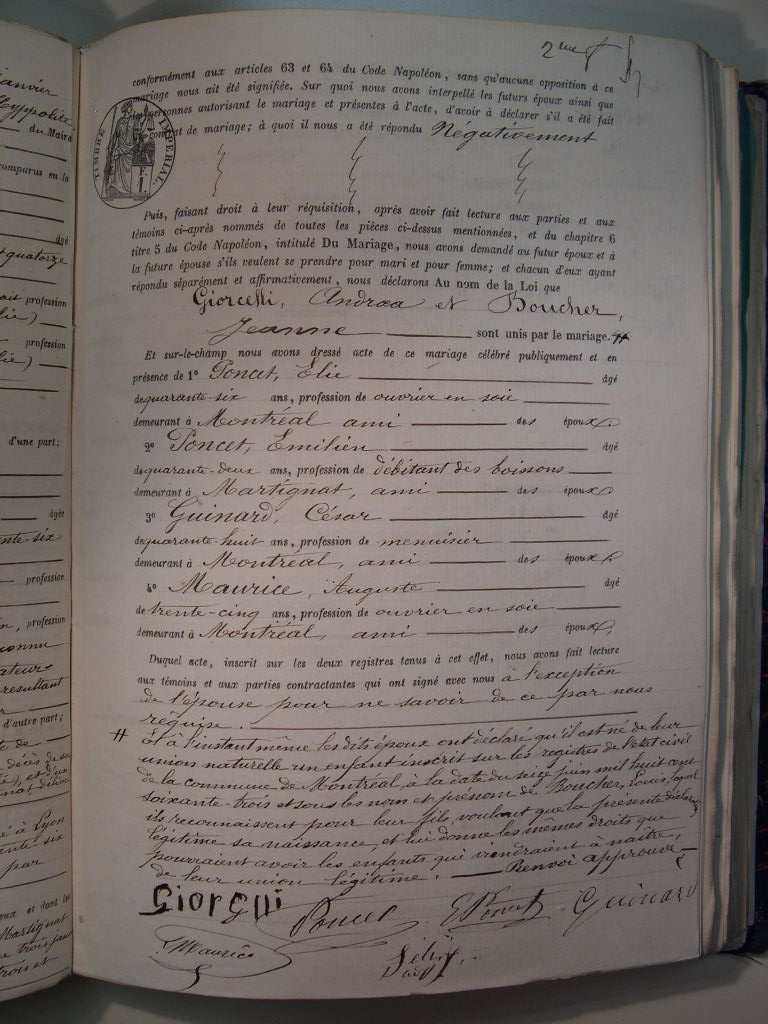 2me
conformément aux articles 63 et 64 du Code Napoléon, sans qu'aucune opposition à ce
mariage nous ait été signifiée. Sur quoi nous avons interpellé les futurs époux ainsi que
les personnes autorisant le mariage et présentes à l'acte, d'avoir à déclarer s'il a été fait
contrat de mariage; à quoi il nous a été répondu Négativement
TIMBRE IMPÉRIAL
Puis, faisant droit à leur réquisition, après avoir fait lecture aux parties et aux
témoins ci-après nommés de toutes les pièces ci-dessus mentionnées, et du chapitre 6
titre 5 du Code Napoléon, intitulé Du Mariage, nous avons demandé au futur époux et à
la future épouse s'ils veulent se prendre pour mari et pour femme; et chacun d'eux ayant
répondu séparément et affirmativement, nous déclarons Au nom de la Loi que
Giorcelli, Andréa et Boucher,
Jeanne sont unis par le mariage. #
Et sur-le-champ nous avons dressé acte de ce mariage célébré publiquement et en
présence de 1o Poncet, Elie âgé
de quarante-six ans, profession de ouvrier en soie
demeurant à Montréal ami des époux.
2o Poncet, Emilien âgé
de quarante-deux ans, profession de débitant des boissons
demeurant à Martignat, ami des époux
3o Guinard, César âgé
de quarante-huit ans, profession de menuisier
demeurant à Montréal, ami des époux.
4o Maurice, Auguste âgé
de trente-cinq ans, profession de ouvrier en soie
demeurant à Montréal, ami des époux,
Duquel acte, inscrit sur les deux registres tenus à cet effet, nous avons fait lecture
aux témoins et aux parties contractantes qui ont signé avec nous à l'exception
de l'épouse pour ne savoir de ce par nous
réquise.
# et à l'instant même les dits époux ont déclaré qu'il est né de leur
union naturelle un enfant inscrit sur les registres de l'état civil
de la commune de Montréal, à la date du seize juin mil huit cent
soixante-trois et sous les nom et prénom de Boucher, Louis,
ils reconnaissent pour leur fils, voulant que la présente déclare
légitime sa naissance, et lui donne les mêmes droits que
pourraient avoir les enfants qui viendraient à naître,
de leur union légitime. Renvoi approuvé
Poncet E Poncet Guinard
Maurice
janvier
Hyppolite
du Maire
comparus en la
âgé
quatorze
profession
profession
d'une part;
âgée
profession
profession
résultant
d'autre part;
à Lyon
par
Martignat
trois et